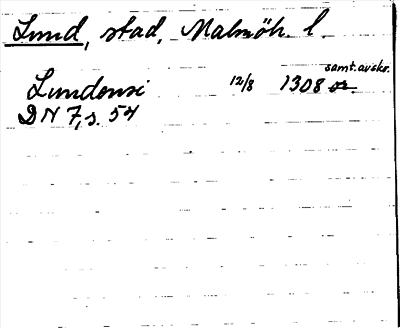 Lund, stad, Malmöh. l.
Lundensi 12/8 1308 or. samt. avskr.
DN 7, s. 54